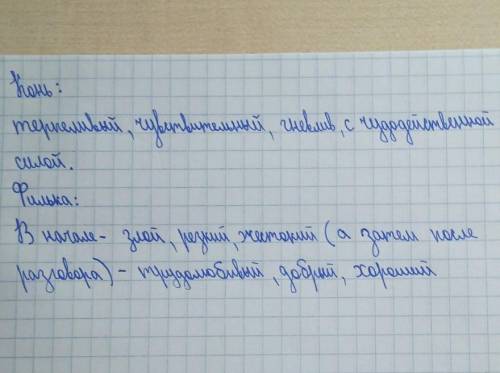 Конь:
терпеливый, чувствительный, гневлив, с чудодейственной
силой.
Филька:
В начале- злой, резкий, жестокий (а затем после
разговора) - трудолюбивый, добрый, хороший